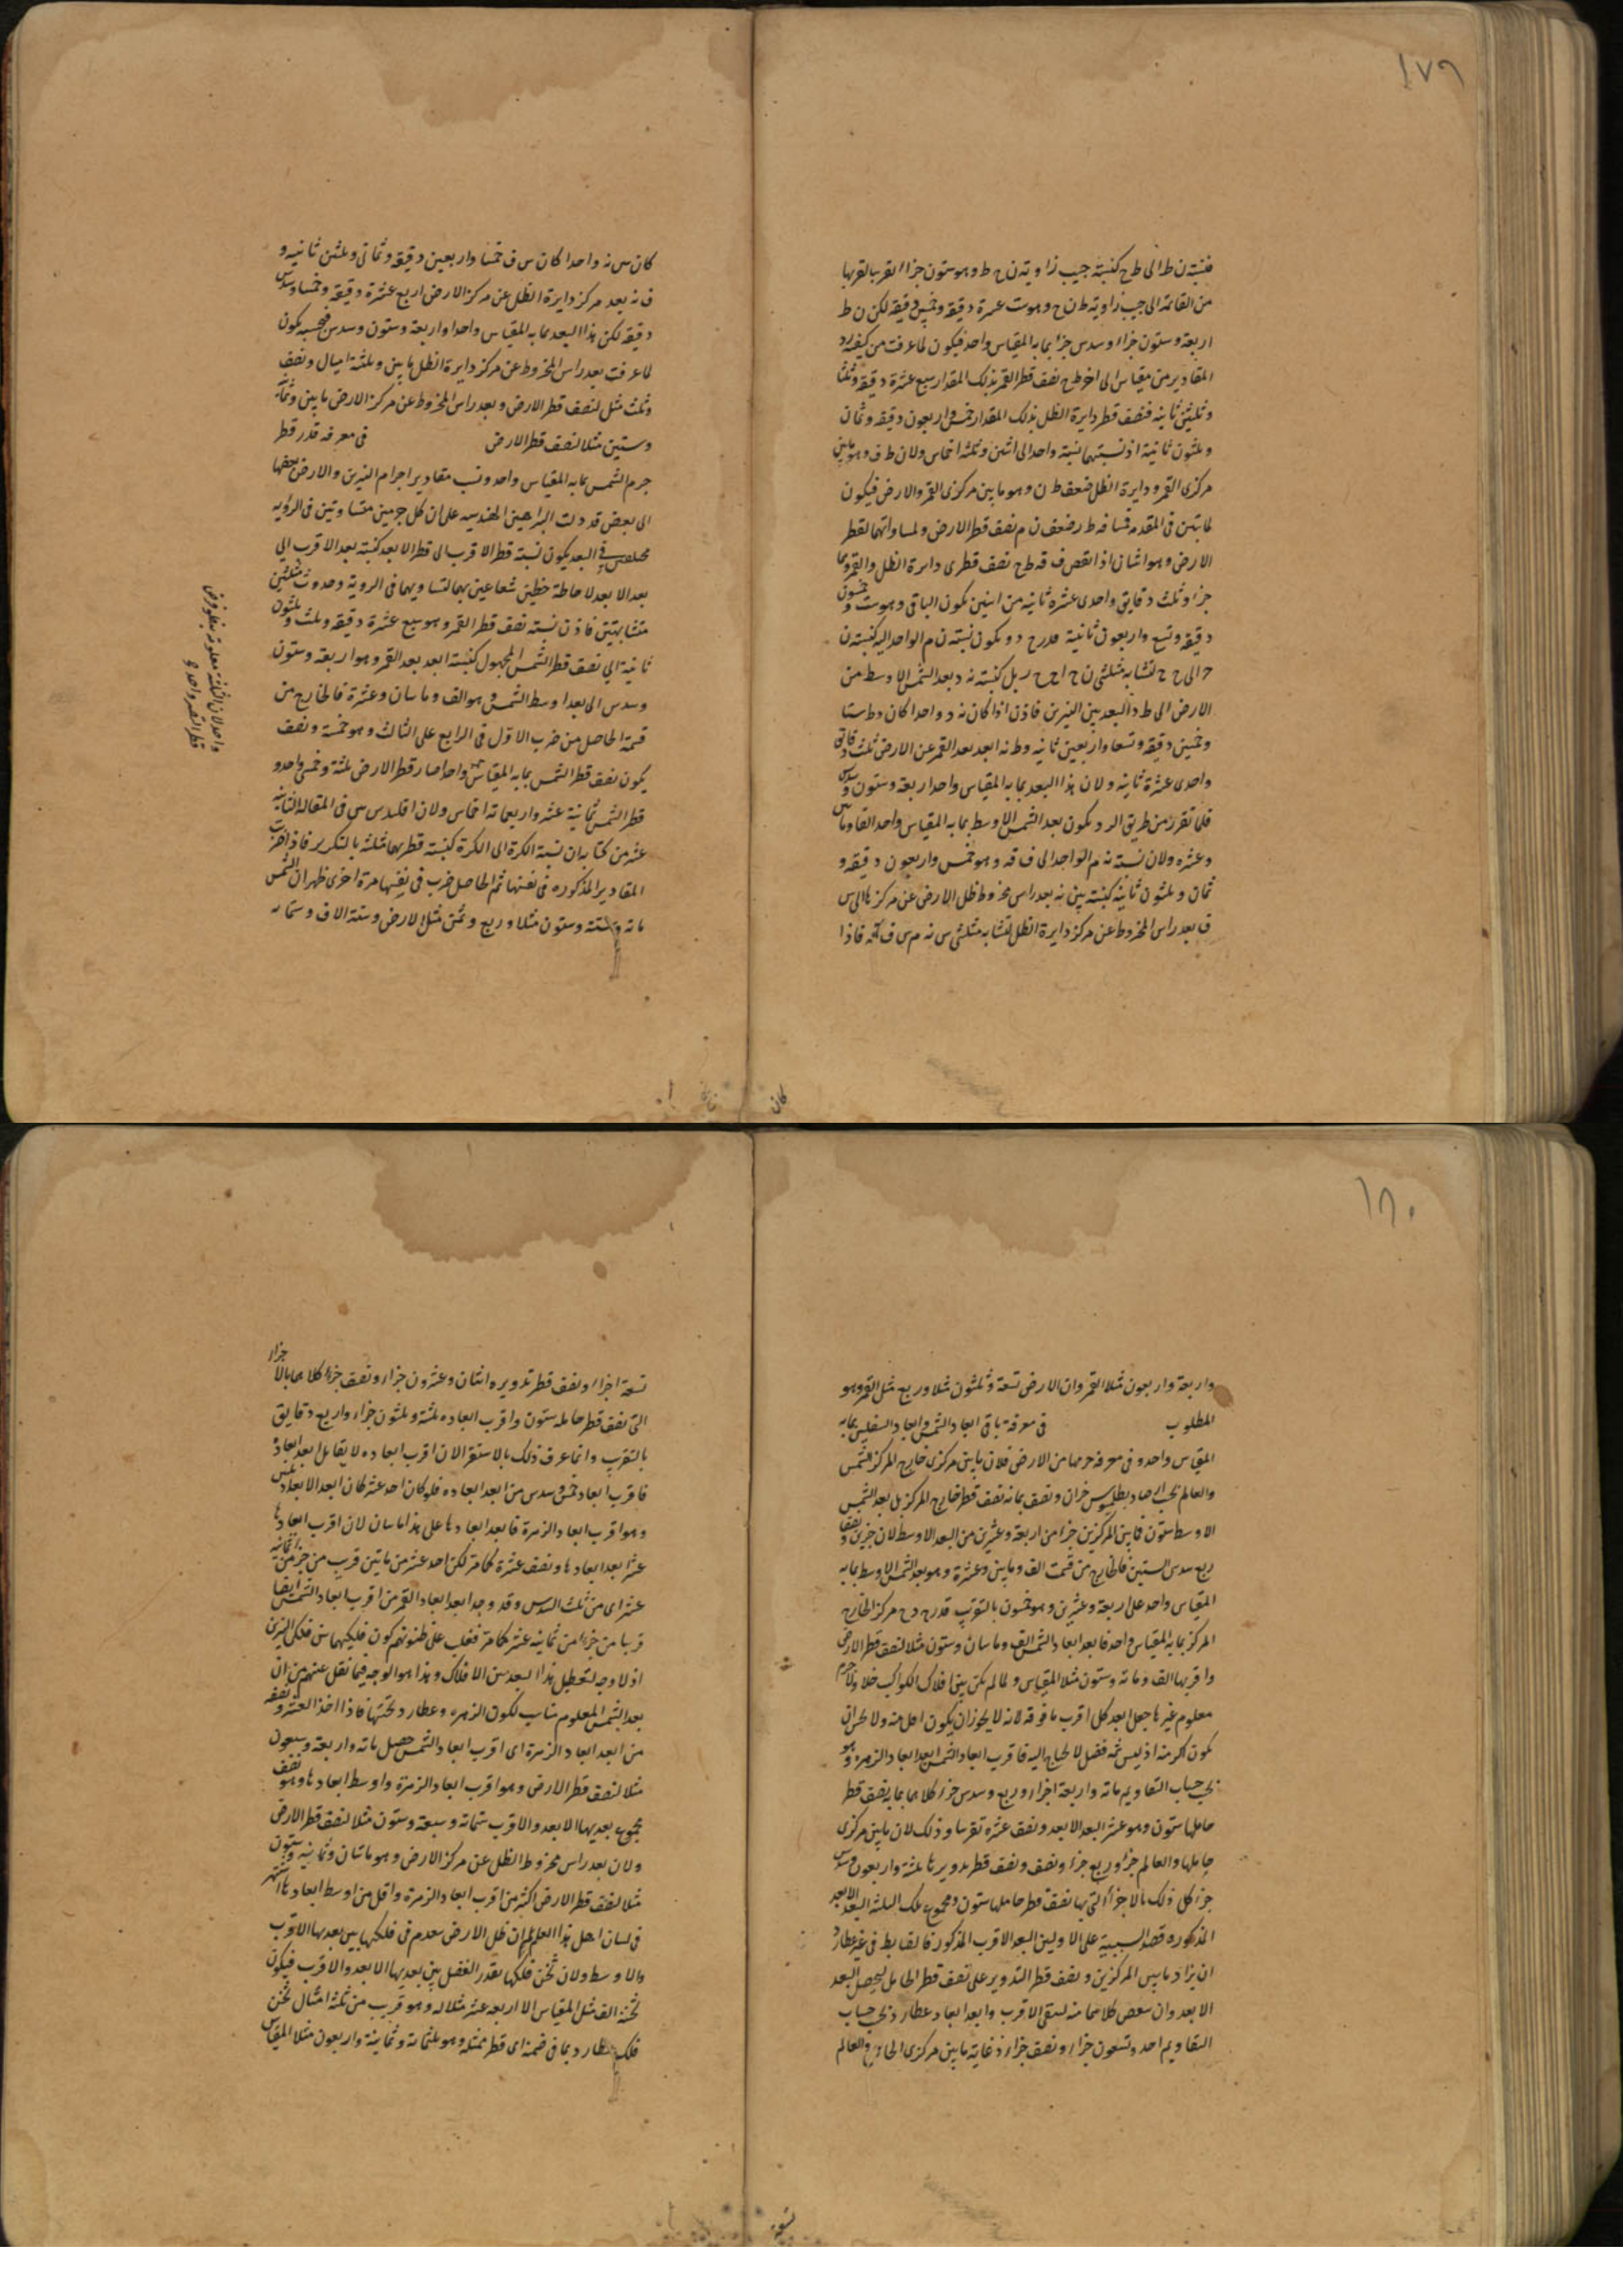 ١٧٩
فنسبة ن ط الى ط ح كنسبة جيب زاوية ن ح ط وهو ستون جزاء القريب لقربها
من القائمة الى جيب زاوية ط ن ح وهو ست عشرة دقيقة وخمس دقيقة لكن ن ط
اربعة وستون جزاء وسدس جزء بما به المقياس واحد فيكون لما عرفت من كيفية رد
المقادير من مقياس الى اخر ط ح نصف قطر القمر بذلك المقدار سبع عشرة دقيقة وثلثا
وثلثين ثانية فنصف قطر دايرة الظل بذلك المقدار خمس واربعون دقيقة وثمان
وثلثون ثانية اذ نسبتهما نسبة واحد الى اثنين وثلثة اخماس ولان ط ف وهو مابين
مركزى القمر ودايرة الظل ضعف ط ن وهو مابين مركزى القمر والارض فيكون
لما تبين في المقدمة ف ط ر ضعف ن م نصف قطر الارض ولمساواتهما لقطر
الارض وهو اثنان اذا نقص ف قه ط ح نصف قطرى دايرة الظل والقمر وهما
جزء وثلث دقايق واحدى عشرة ثانية من اثنين يكون الباقى وهو ست وخمسون
دقيقة وتسع واربعون ثانية قدر ح ر ويكون نسبة ن م الواحد اليه كنسبة ن
ح الى ح ح لتشابه مثلثى ن ح ا ح ح ر بل كنسبة نه د بعد الشمس الاوسط من
الارض الى ط د البعد بين النيرين فاذن اذا كان نه د واحدا كان د ط ستا
وخمسين دقيقة وتسعا واربعين ثانية وط نه ابعد بعد القمر عن الارض ثلث دقايق
واحدى عشرة ثانية ولان هذا البعد بما به المقياس واحد اربعة وستون وسدس
فلما تقرر من طريق الرد يكون بعد الشمس الاوسط بما به المقياس واحد الفا ومائتين
وعشرة ولان نسبة نه م الواحد الى ف قه وهو خمس واربعون دقيقة و
ثمان وثلثون ثانية كنسبة س نه بعد راس مخروط ظل الارض عن مركزها الى س
ف بعد راس المخروط عن مركز دايرة الظل لتشابه مثلثى س نه م س ف قه فاذا
كان
كان س نه واحدا كان س ف خمسا واربعين دقيقة وثمانى وثلثين ثانية و
ف نه بعد مركز دايرة الظل عن مركز الارض اربع عشرة دقيقة وخمسا وسدس
دقيقة لكن هذا البعد بما به المقياس واحد اربعة وستون وسدس فبحسبه يكون
لما عرفت بعد راس المخروط عن مركز دايرة الظل مايتين وثلثة امثال ونصف
وثلث مثل لنصف قطر الارض وبعد راس المخروط عن مركز الارض مايتين وثمانية
وستين مثلا لنصف قطر الارض في معرفة قدر قطر
جرم الشمس بما به المقياس واحد ونسب مقادير اجرام النيرين والارض بعضها
الى بعض قد دلت البراهين الهندسية على ان كل جرمين متساويتين في الروية
مختلفين في البعد يكون نسبة قطر الاقرب الى قطر الابعد كنسبة بعد الاقرب الى
بعد الابعد لاحاطة خطين شعاعين بهما لتساويهما في الروية وحدوث مثلثين
متشابهتين فاذن نسبة نصف قطر القمر وهو سبع عشرة دقيقة وثلث وثلثون
ثانية الى نصف قطر الشمس المجهول كنسبة ابعد بعد القمر وهو اربعة وستون
وسدس الى بعد اوسط الشمس وهو الف ومايتان وعشرة فالخارج من
قسمة الحاصل من ضرب الاول في الرابع على الثالث وهو خمسة ونصف
يكون نصف قطر الشمس بما به المقياس واحدا صار قطر الارض ثلثة وخمسى واحد و
قطر الشمس ثمانية عشر واربعة اخماس ولان اقليدس بين في المقالة الثانية
عشر من كتابه ان نسبة الكرة الى الكرة كنسبة قطريهما مثلثة بالتكرير فاذا ضرب
المقادير المذكورة في نفسها ثم الحاصل ضرب في نفسها مرة اخرى ظهر ان الشمس
مائة وستة وستون مثلا وربع وثمن مثل للارض وستة الاف وستمائه
واحد لان الثلثة معلومة بفروض
قطر القمر واحد و
١٨٠
واربعة واربعون مثلا للقمر وان الارض تسعة وثلثون مثلا وربع مثل للقمر وهو
المطلوب في معرفة باقى ابعاد الشمس وابعاد السفليين بما به
المقياس واحد وفى معرفة جرمهما من الارض فلان مابين مركزى خارج المركز للشمس
والعالم بحسب ارصاد بطليموس جزان ونصف بما به نصف قطر خارج المركز بل بعد الشمس
الاوسط ستون فمابين المركزين جزء من اربعة وعشرين من البعد الاوسط لان جزئين ونصفا
ربع سدس الستين فالخارج من قسمة الف ومايتين وعشرة وهو بعد الشمس الاوسط بما به
المقياس واحد على اربعة وعشرين وهو خمسون بالتقريب قدر ح د ح مركز الخارج
المركز بما به المقياس واحد فابعد ابعاد الشمس الف ومايتان وستون مثلا لنصف قطر الارض
واقربها الف ومائة وستون مثلا للمقياس ولما لم يكن بين افلاك الكواكب خلاء ولا جرم
معلوم غيرها جعل ابعد كل اقرب ما فوقه لانه لا يجوز ان يكون اعلى منه ولا يحسن ان
يكون اكثر منه اذ ليس ثمه فضل لا يحتاج اليه فاقرب ابعاد الشمس ابعد ابعاد الزهرة وهو
بحسب حساب التقاويم مائة واربعة اجزاء وربع وسدس جزء كلاهما بما به نصف قطر
حاملها ستون وهو عشر البعد الابعد ونصف عشره تقريبا وذلك لان مابين مركزى
حاملها والعالم جزء وربع جزء ونصف ونصف قطر تدويرها ثلثة واربعون وسدس
جزء كل ذلك بالاجزاء التى بها نصف قطر حاملها ستون ومجموع تلك الثلثة البعد الابعد
المذكورة فضل الستين على الاولين البعد الاقرب المذكور فالضابط في غير عطارد
ان يزاد مابين المركزين ونصف قطر التدوير على نصف قطر الحامل ليحصل البعد
الابعد وان ينقص كلاهما منه ليبقى الاقرب وابعد ابعاد عطارد بحسب حساب
التقاويم احد وتسعون جزاء ونصف جزاء اذ غاية مابين مركزى الحامل والعالم
تسعة
تسعة اجزاء ونصف قطر تدويره اثنان وعشرون جزاء ونصف جزء كلاهما بالاجزاء
التى نصف قطر حامله ستون واقرب ابعاده ثلثة وثلثون جزاء واربع دقايق
بالتقريب وانما عرف ذلك بالاستقراء لان اقرب ابعاده لا يقابل ابعد ابعاده
فاقرب ابعاده خمس وسدس من ابعد ابعاده فلو كان احد عشر كان ابعد الابعاد ثلثين
وهو اقرب ابعاد الزهرة فابعد ابعادها على هذا مايتان لان اقرب ابعادها
عشر ابعد ابعادها ونصف عشره كما مر لكن احد عشر من مايتين قريب من جزء من ثمانية
عشر اى من ثلث السدس وقد وجد ابعد ابعاد القمر من اقرب ابعاد الشمس ايضا
قريبا من جزء من ثمانية عشر كما مر فغلب على ظنونهم كون فلكيهما بين فلكى النيرين
اذ لا وجه لتعطيل هذا البعد من الافلاك وهذا هو الوجه فيما نقل عنهم من ان
بعد الشمس المعلوم مناسب لكون الزهرة وعطارد تحتها فاذا اخذ العشر ونصفه
من ابعد ابعاد الزهرة اى اقرب ابعاد الشمس حصل مائة واربعة وسبعون
مثلا لنصف قطر الارض وهو اقرب ابعاد الزهرة واوسط ابعادها وهو نصف
مجموع بعديها الابعد والاقرب ستمائة وسبعة وستون مثلا لنصف قطر الارض
ولان بعد راس مخروط الظل عن مركز الارض وهو مايتان وثمانية وستون
مثلا لنصف قطر الارض اكثر من اقرب ابعاد الزهرة واقل من اوسط ابعادها اشتهر
في لسان اهل هذا العلم ان ظل الارض ينعدم في فلكها بين بعديها الاقرب
والاوسط ولان ثخن فلكها بقدر الفضل بين بعديها الابعد والاقرب فيكون
ثخنه الف مثل المقياس الا اربعة عشر مثلا له وهو قريب من ثلثة امثال ثخن
فلك عطارد بما في ضمنه اى قطر ممثله وهو ثلثمائة وثمانية واربعون مثلا للمقياس